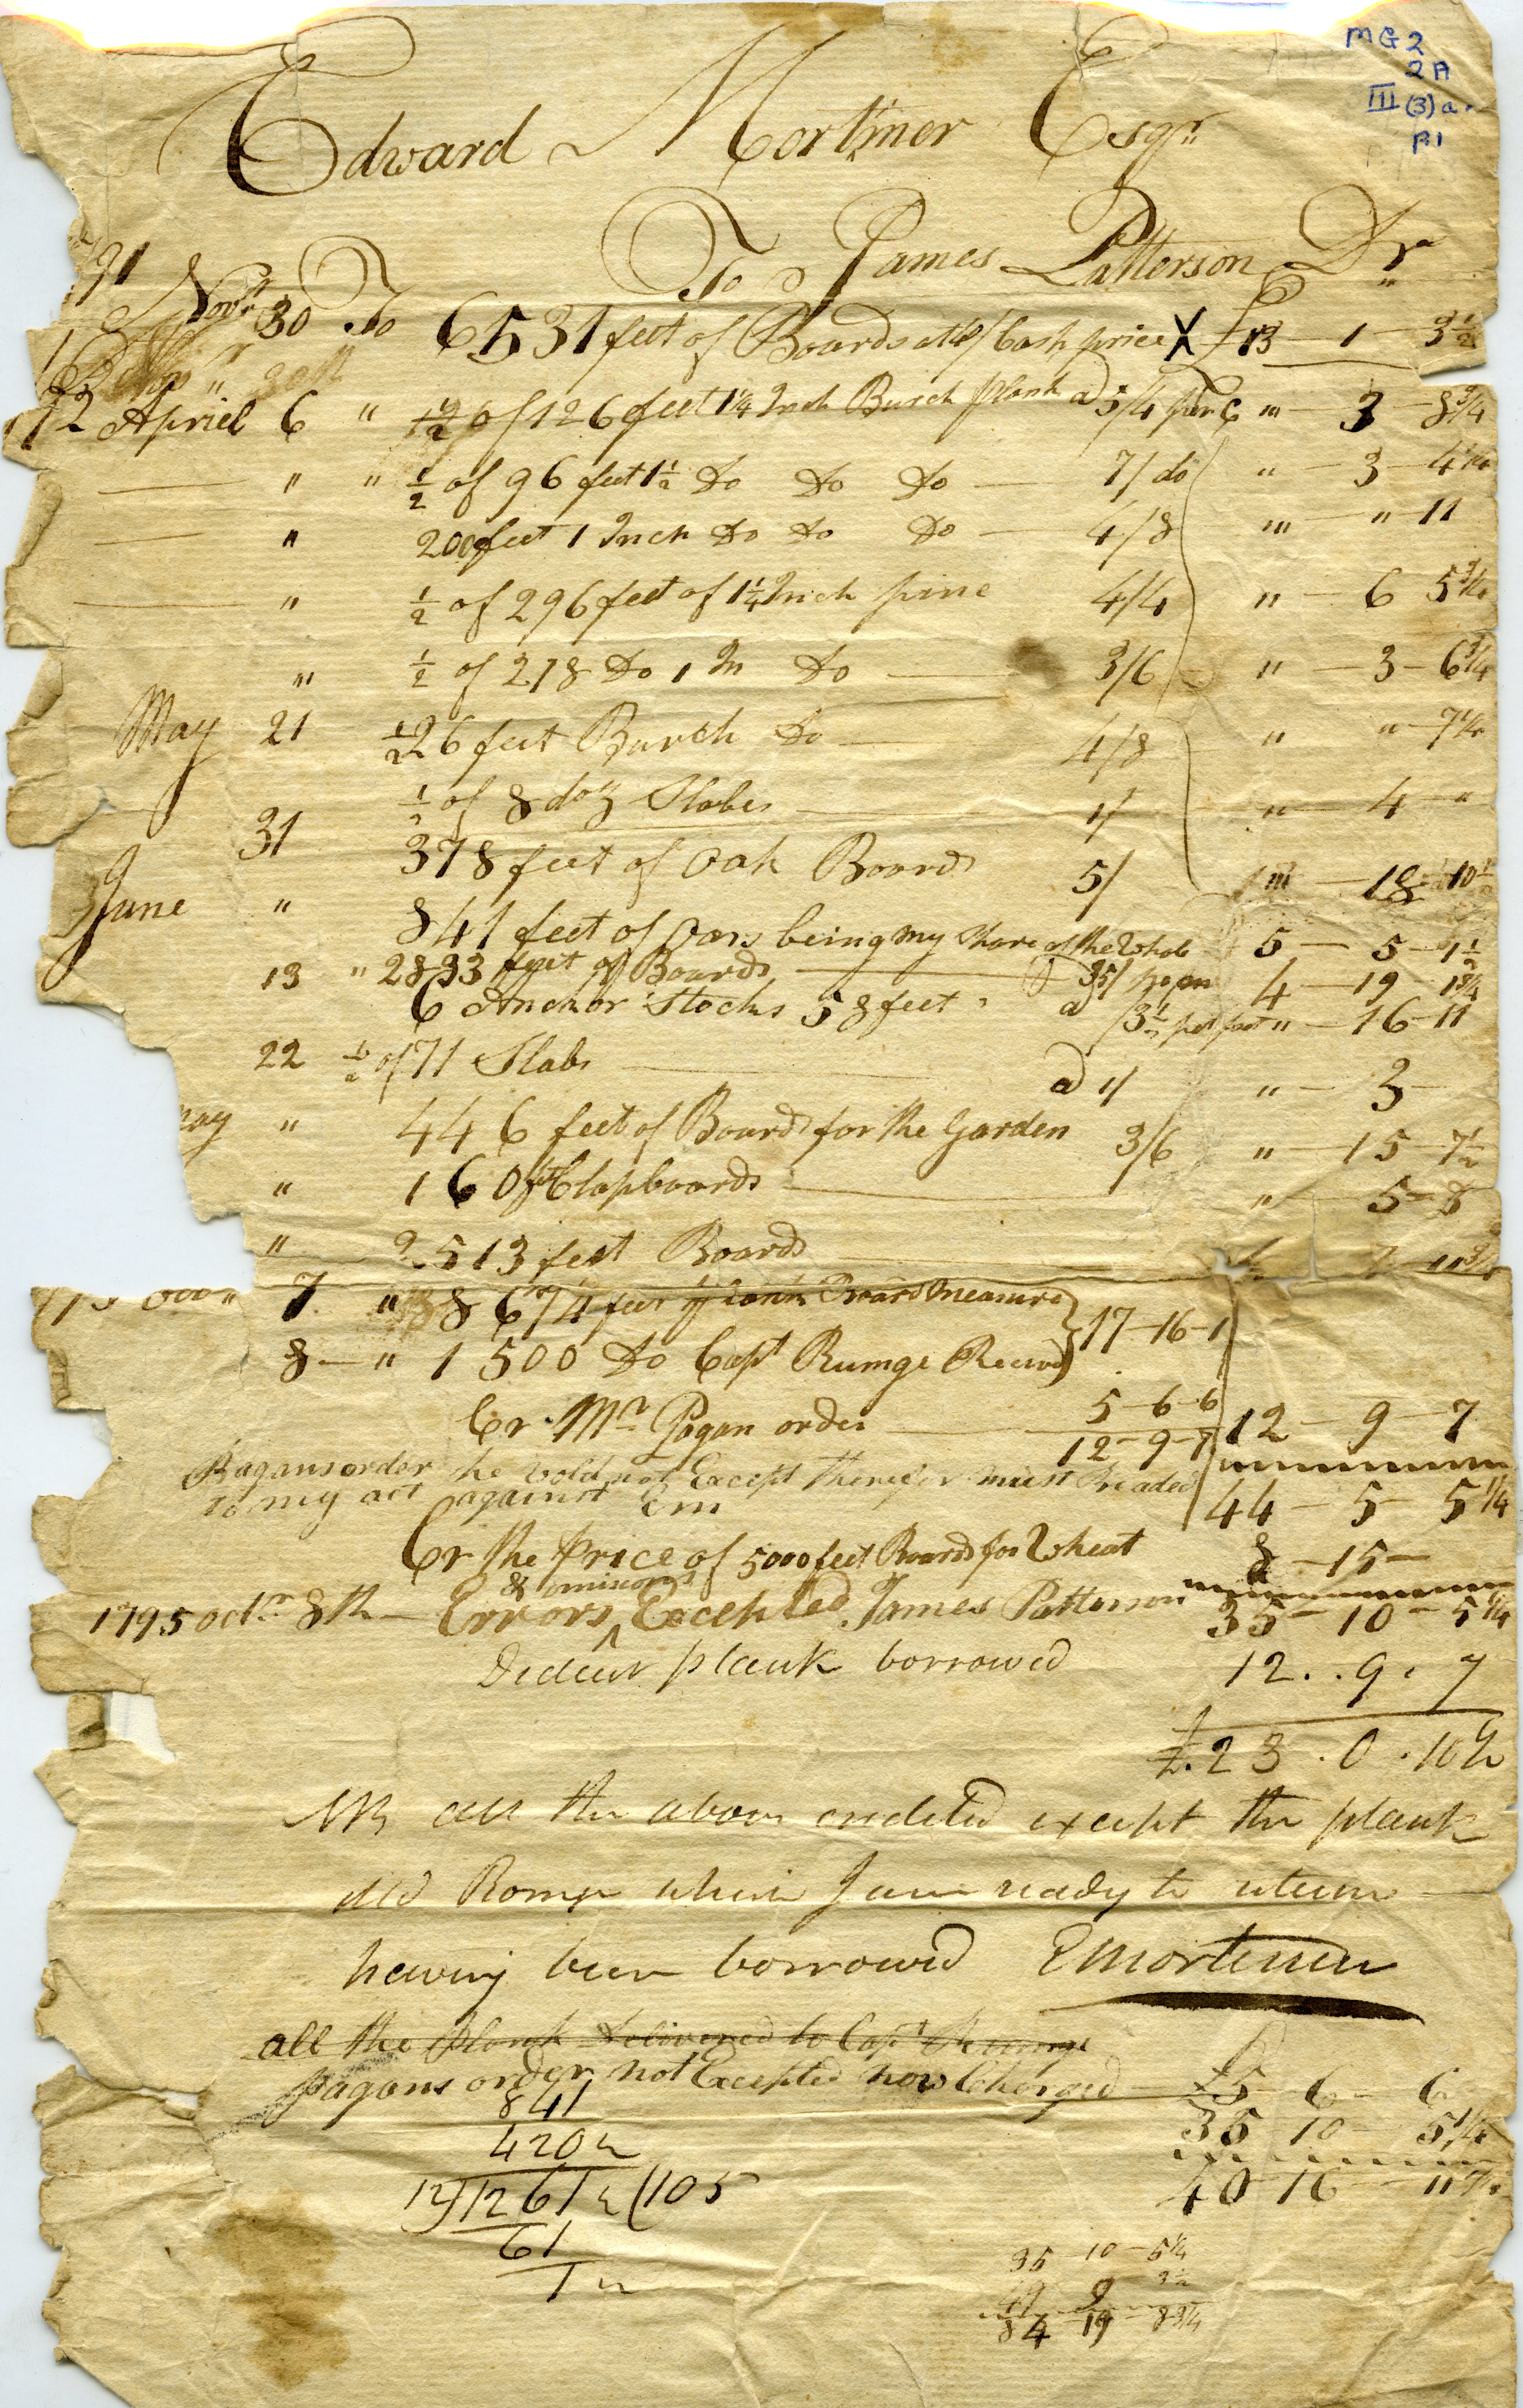 MG2
2A
III (3) a.
P1
Edward Mortimer Esqr
To James Patterson Dr
91
Novr 30 To 6531 feet of Boards at 40/ Cash price X £13 - 1 - 3 1/2
92 Apriel 6 " 1/2 of 126 feet 1 1/4 Inch Burch plank a 5/4 per C " - 3 - 8 3/4
" " 1/2 of 96 feet 1 1/2 Do Do Do - 7/ do " - 3 - 4 1/4
" 200 feet 1 Inch Do Do Do - 4/8 " - " - 11
" 1/2 of 296 feet of 1 1/4 Inch pine 4/4 " - 6 5 3/4
" 1/2 of 218 Do 1 In Do 3/6 " - 3 - 6 3/4
May 21 1/2 26 feet Burch Do 4/8 " " - 7 1/4
1/2 of 8 doz Slabes 1/ " - 4 - "
31 378 feet of Oak Boards 5/ " - 18 - 10 1/2
June " 841 feet of Oars being my Share of the Whole 5 - 5 - 1 1/2
13 " 2833 feet of Boards a 35/ 4 - 19 - 1 3/4
6 Anchor Stocks 58 feet a /3 1/2 per foot " - 16 - 11
22 1/2 of 71 Slabs a 1/ " - 3 -
May " 446 feet of Boards for the Garden 3/6 " - 15 - 7 1/2
" 160 ft Clapboards " - 5 - 8
" 2513 feet Boards
7 " 8674 feet of plank Board Measure } 17 - 16 - 1
8 - " 1500 Do Capt Rumge Received
Cr Mr Pagan order 5 - 6 - 6
12 - 9 - 7 12 - 9 - 7
Pagans order he wold not Except therefor must be aded
to my act against Em
44 - 5 - 5 1/4
Cr the Price of 5000 feet Boards for Wheat 8 - 15 -
1795 Octr 8th - Errors & omisions Excepted James Patterson 35 - 10 - 5 1/4
Deduct plank borrowed 12 . . 9 . 7
£.23 . 0 . 10 1/4
NB all the above credited except the plank
dld Romge which I am ready to return
having been borrowed EMortimer
all the Plank Delivered to Capt Rumge
Pagans order not Excepted now Charged £5 6 - 6
35 10 - 5 1/4
40 16 - 11 1/4
841
420 1/2
12)1261 1/2(105
61
1 1/2
35 - 10 - 5 1/4
49 9 3 1/2
84 19 - 8 3/4